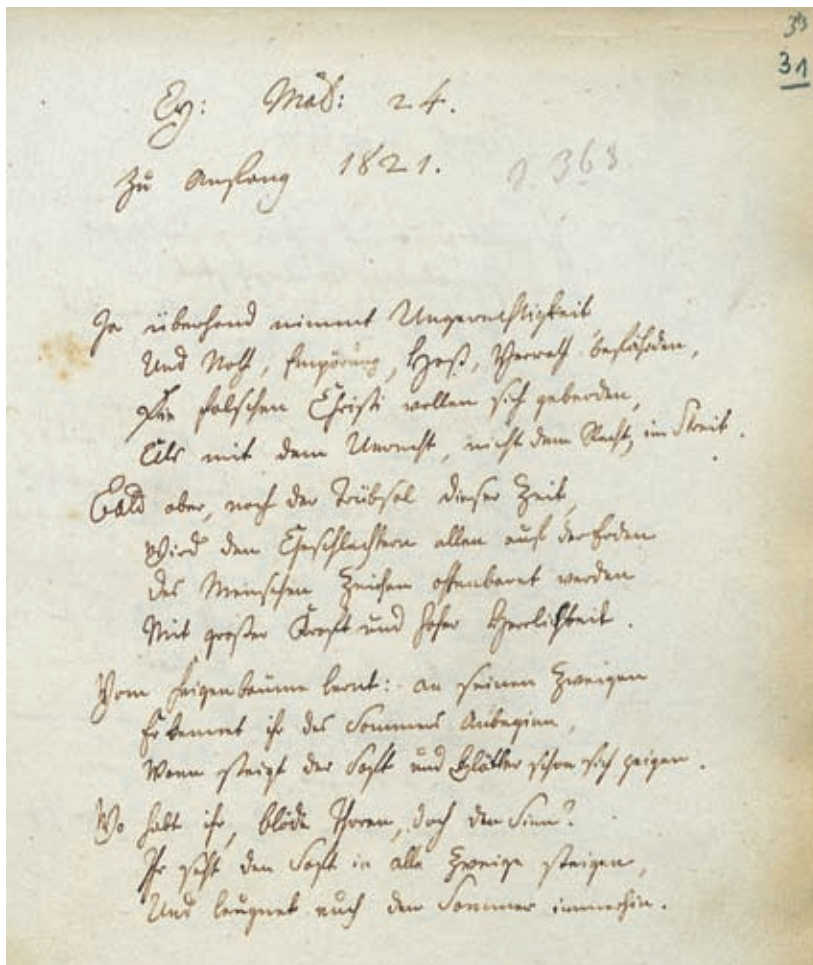 33
31
Ev: Math: 24.
Zu Anfang 1821.
S. 363.
Ja überhand nimmt Ungerechtigkeit
Und Noth, Empörung, Haß, Verrath
Die falschen Christi wollen sich geberden,
Als mit dem Unrecht, nicht dem Recht, im Streit.
Bald aber, nach der Trübsal dieser Zeit,
Wird den Geschlechtern allen auf der Erden
Des Menschen Zeichen offenbaret werden
Mit großer Kraft und hoher Herrlichkeit.
Vom Feigenbaume lernt: an seinen Zweigen
Erkennet ihr des Sommers Anbeginn,
Wenn steigt der Saft und Blätter schon sich zeigen.
Wo habt ihr, blöde Thoren, doch den Sinn?
Ihr seht den Saft in alle Zweige steigen,
Und leugnet euch den Sommer immerhin.